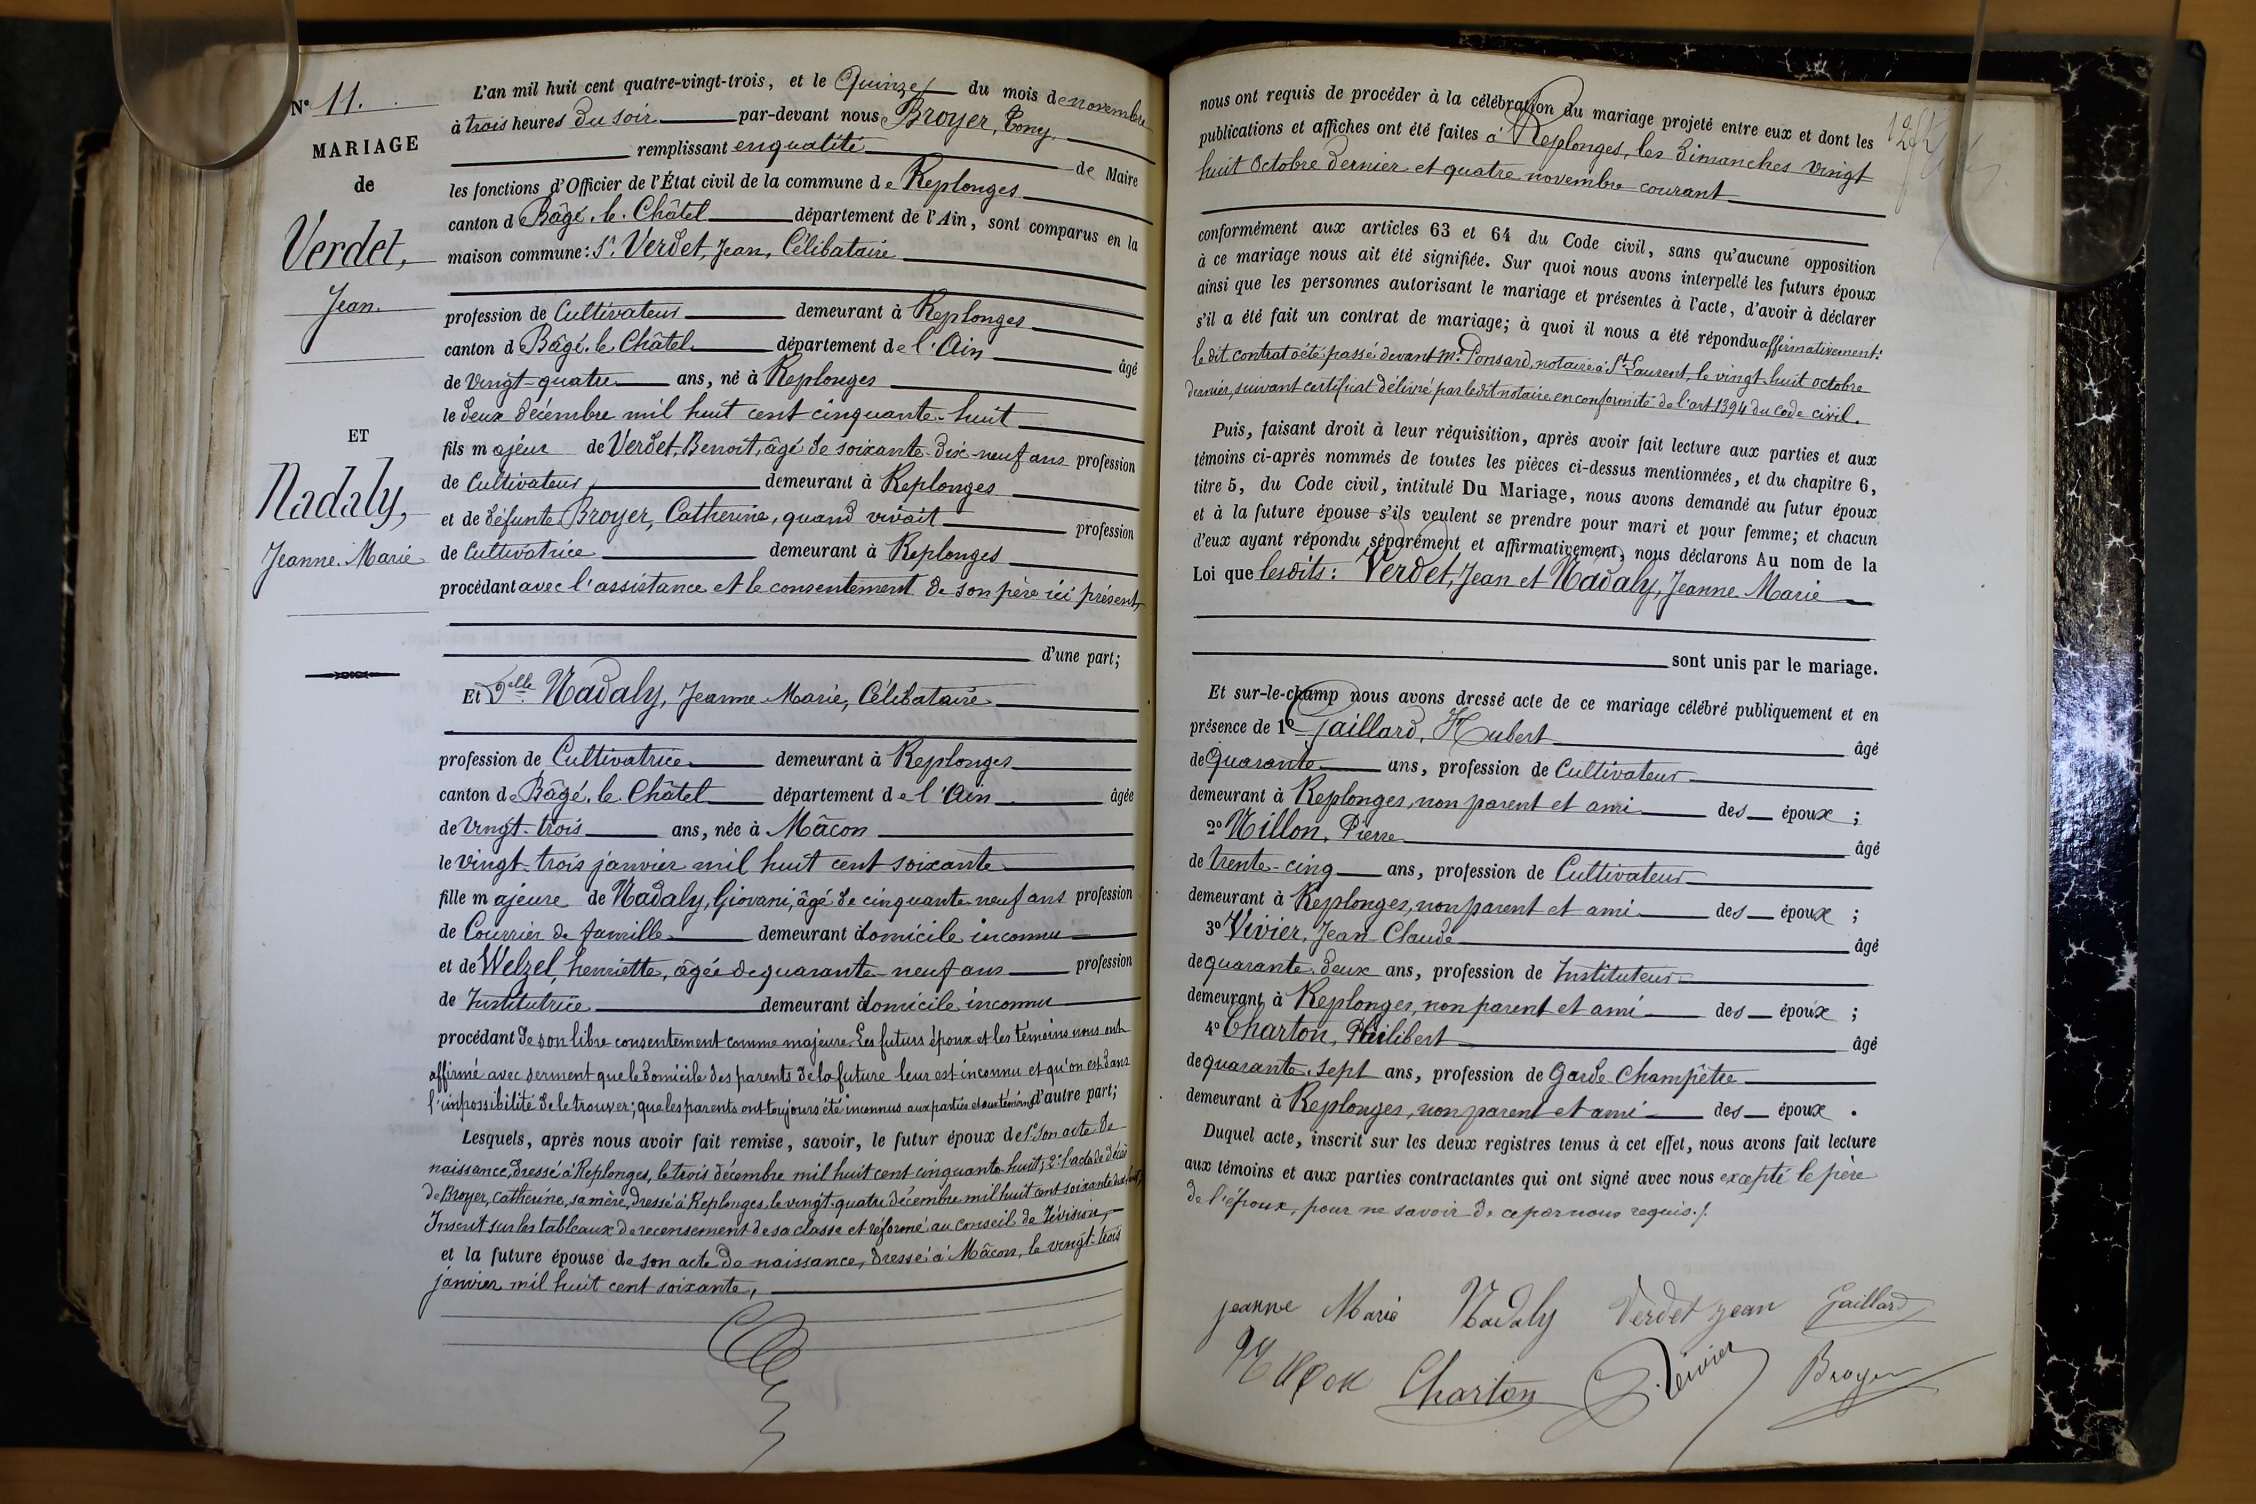 N° 11.
MARIAGE
de
Verdet,
Jean.
ET
Nadaly,
Jeanne. Marie
L'an mil huit cent quatre-vingt-trois, et le Quinze du mois de novembre
à trois heures du soir par-devant nous Broyer, Tony
remplissant en qualité de Maire
les fonctions d'Officier de l'État civil de la commune de Replonges
canton d Bâgé. le. Châtel département de l'Ain, sont comparus en la
maison commune: Sr. Verdet, Jean, Célibataire
profession de Cultivateur demeurant à Replonges
canton d Bâgé. le Châtel département de l'Ain âgé
de vingt-quatre ans, né à Replonges
le deux décembre mil huit cent cinquante-huit
fils majeur de Verdet, Benoît, âgé de soixante-dix-neuf ans profession
de Cultivateur, demeurant à Replonges
et de défunte Broyer, Catherine, quand vivait profession
de Cultivatrice demeurant à Replonges
procédant avec l'assistance et le consentement de son père ici présent
d'une part;
Et Delle Nadaly, Jeanne Marie, Célibataire
profession de Cultivatrice demeurant à Replonges
canton de Bâgé. le. Châtel département de l'Ain âgée
de vingt-trois ans, née à Mâcon
le vingt-trois janvier mil huit cent soixante
fille majeure de Nadaly, Giovani, âgé de cinquante-neuf ans profession
de Courrier de famille demeurant à domicile inconnu
et de Welzel, henriette, âgée de quarante-neuf ans profession
de Institutrice demeurant à domicile inconnu
procédant de son libre consentement comme majeure. Les futurs époux et les témoins nous ont
affirmé avec serment que le domicile des parents de la future leur est inconnu et qu'on est dans
l'impossibilité de le trouver; que les parents ont toujours été inconnus aux parties et aux témoins d'autre part;
Lesquels, après nous avoir fait remise, savoir, le futur époux de 1° son acte de
naissance, dressé à Replonges, le trois décembre mil huit cent cinquante-huit; 2° l'acte de décès
de Broyer, Catherine, sa mère, dressé à Replonges, le vingt-quatre décembre mil huit cent soixante
Inscrit sur les tableaux de recensement de sa classe et réformé au conseil de révision,
et la future épouse de son acte de naissance, dressé à Mâcon, le vingt-trois
janvier mil huit cent soixante,
nous ont requis de procéder à la célébration du mariage projeté entre eux et dont les
publications et affiches ont été faites à Replonges, les dimanches vingt
huit Octobre dernier et quatre novembre courant
conformément aux articles 63 et 64 du Code civil, sans qu'aucune opposition
à ce mariage nous ait été signifiée. Sur quoi nous avons interpellé les futurs époux
ainsi que les personnes autorisant le mariage et présentes à l'acte, d'avoir à déclarer
s'il a été fait un contrat de mariage; à quoi il nous a été répondu affirmativement:
le dit contrat a été passé devant Me. Ponsard, notaire à St. Laurent, le vingt-huit octobre
dernier, suivant certificat délivré par ledit notaire en conformité de l'art. 1394 du Code civil.
Puis, faisant droit à leur réquisition, après avoir fait lecture aux parties et aux
témoins ci-après nommés de toutes les pièces ci-dessus mentionnées, et du chapitre 6,
titre 5, du Code civil, intitulé Du Mariage, nous avons demandé au futur époux
et à la future épouse s'ils veulent se prendre pour mari et pour femme; et chacun
d'eux ayant répondu séparément et affirmativement, nous déclarons Au nom de la
Loi que lesdits: Verdet, Jean et Nadaly, Jeanne Marie
sont unis par le mariage.
Et sur-le-champ nous avons dressé acte de ce mariage célébré publiquement et en
présence de 1° Gaillard, Hubert âgé
de Quarante ans, profession de Cultivateur
demeurant à Replonges, non parent et ami des époux ;
2° Nillon, Pierre âgé
de trente-cinq ans, profession de Cultivateur
demeurant à Replonges, non parent et ami des époux ;
3° Vivier, Jean-Claude âgé
de quarante-deux ans, profession de Instituteur
demeurant à Replonges, non parent et ami des époux ;
4° Charton, Philibert âgé
de quarante-sept ans, profession de Garde Champêtre
demeurant à Replonges, non parent et ami des époux .
Duquel acte, inscrit sur les deux registres tenus à cet effet, nous avons fait lecture
aux témoins et aux parties contractantes qui ont signé avec nous excepté le père
de l'époux, pour ne savoir de ce par nous requis./.
jeanne Marie Nadaly Verdet jean Gaillard
Charton Vivier Broyer